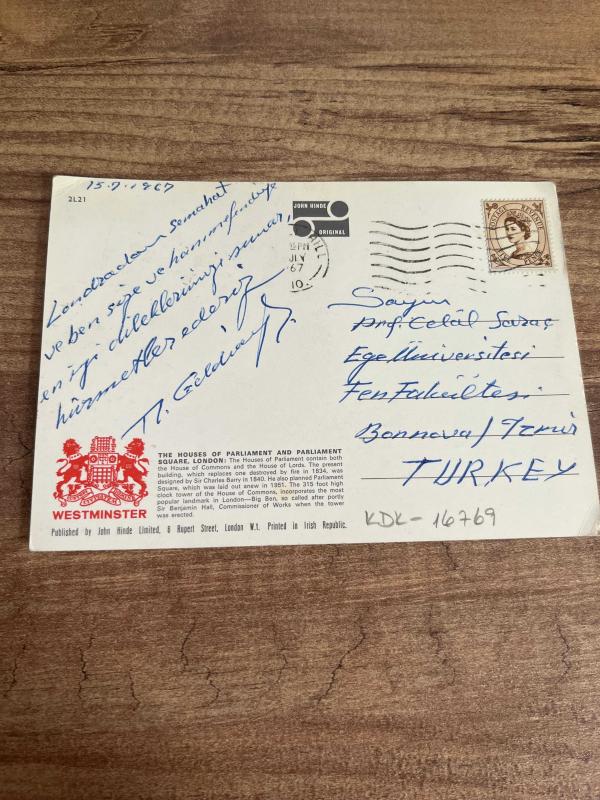 2L21
15.7.1967
Londradan Semahat
ve ben size ve hanımefendiye
en iyi dileklerimizi sunar,
hürmetler ederiz
M.
JOHN HINDE
ORIGINAL
PM
JLY
67
10
Sayın
Prof. Celâl Saraç
Ege Üniversitesi
Fen Fakültesi
Bornova/İzmir
TURKEY
THE HOUSES OF PARLIAMENT AND PARLIAMENT
SQUARE, LONDON: The Houses of Parliament contain both
the House of Commons and the House of Lords. The present
building, which replaces one destroyed by fire in 1834, was
designed by Sir Charles Barry in 1840. He also planned Parliament
Square, which was laid out anew in 1951. The 315 foot high
clock tower of the House of Commons, incorporates the most
popular landmark in London—Big Ben, so called after portly
Sir Benjamin Hall, Commissioner of Works when the tower
was erected.
WESTMINSTER
Published by John Hinde Limited, 6 Rupert Street, London W.1. Printed in Irish Republic.
KDK-16769